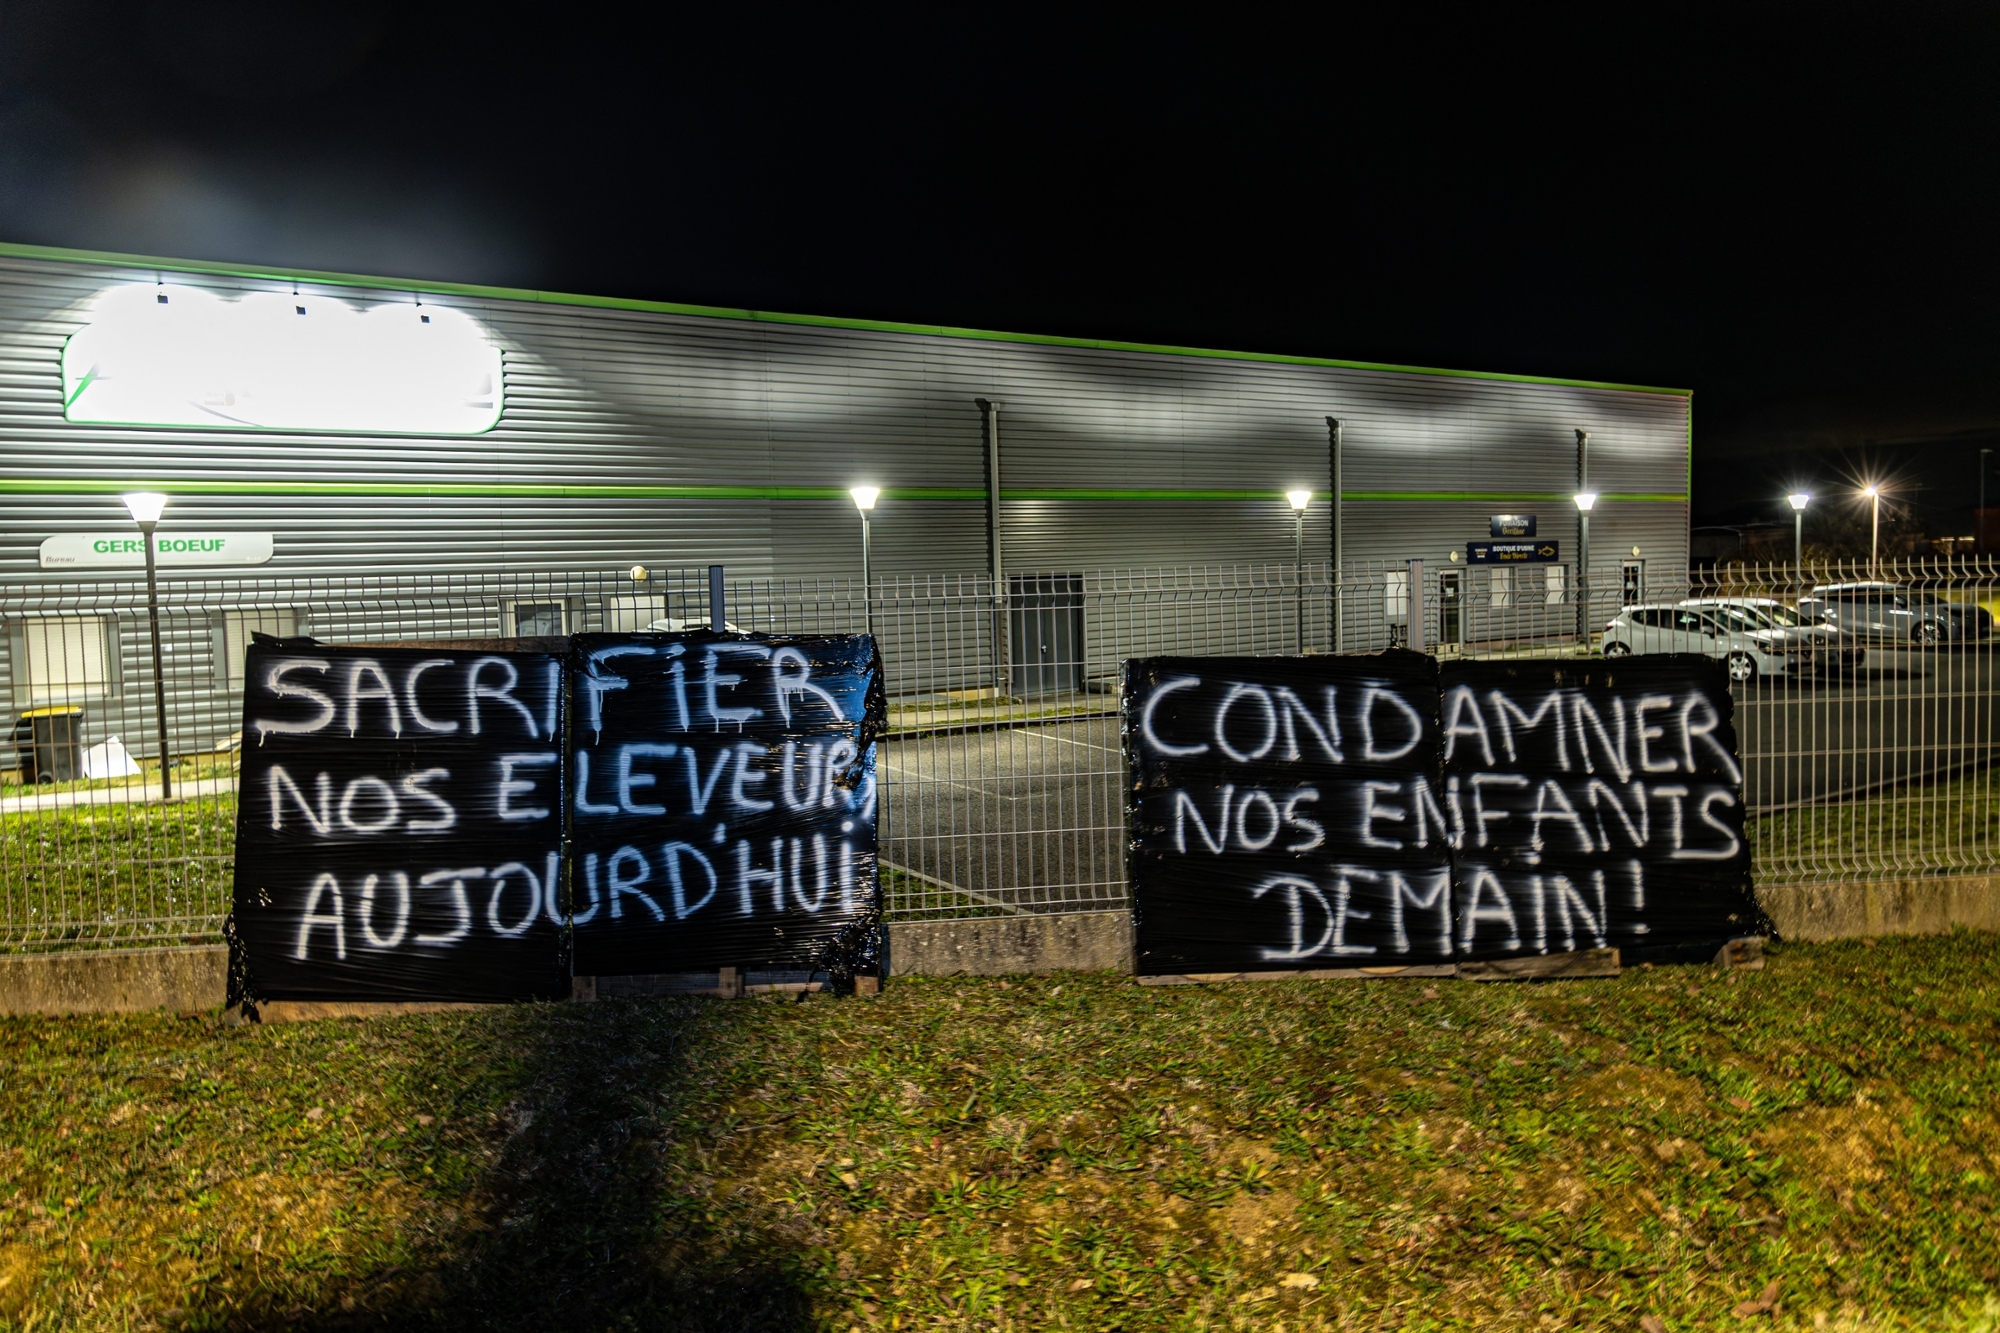 GERS BOEUF
Bureau
BOUTIQUE D'USINE
SACRIFIER
NOS ELEVEURS
AUJOURD'HUi
CONDAMNER
NOS ENFANTS
DEMAIN!